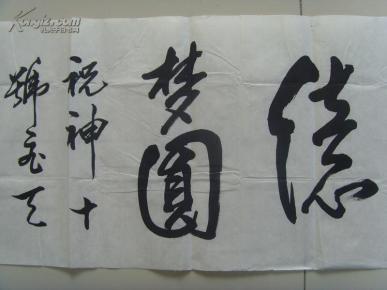 Kongfz.com
孔夫子旧书网
億
梦圆
祝神十
號飛天